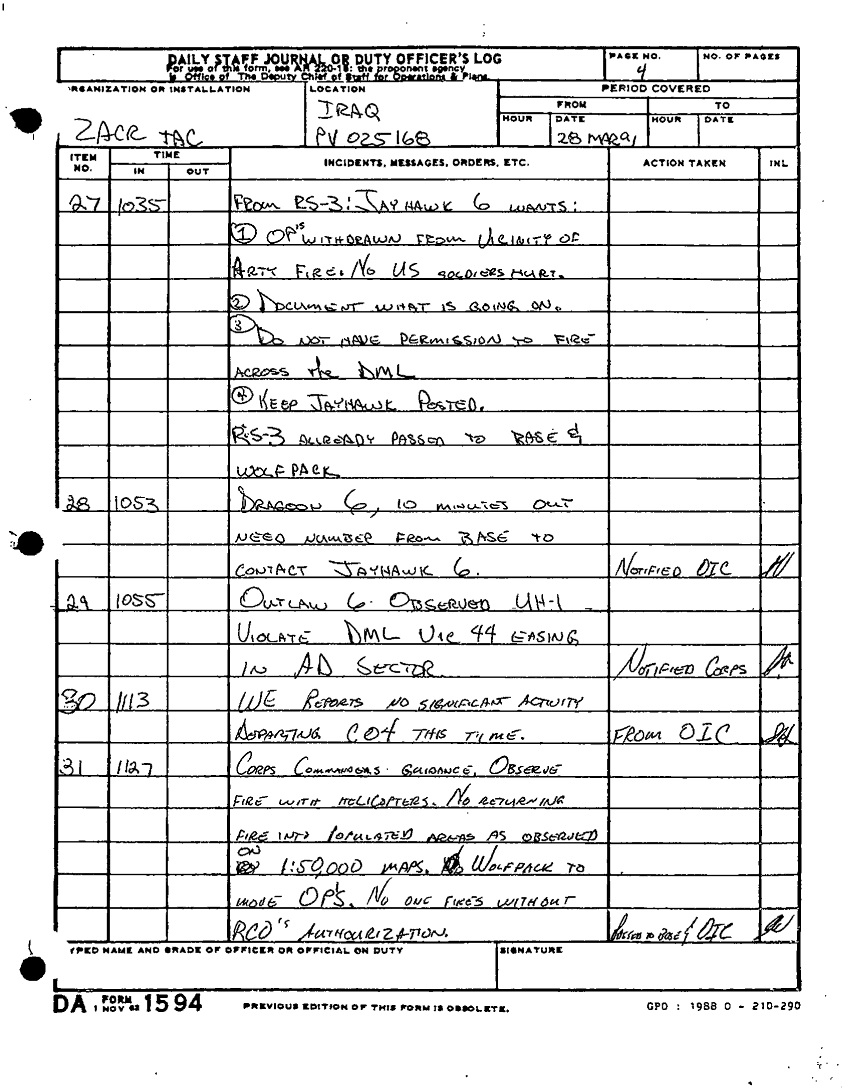 DAILY STAFF JOURNAL OR DUTY OFFICER'S LOG
For use of this form, see AR 220-15; the proponent agency
is Office of The Deputy Chief of Staff for Operations & Plans.
PAGE NO.
4
NO. OF PAGES
RGANIZATION OR INSTALLATION
2ACR TAC
LOCATION
IRAQ
PV 025168
PERIOD COVERED
FROM
TO
HOUR
DATE
HOUR
DATE
28 MAR 91
ITEM NO.
TIME
IN
OUT
INCIDENTS, MESSAGES, ORDERS, ETC.
ACTION TAKEN
INL
27 1035 FROM RS-3: JAYHAWK 6 WANTS:
① OP'S WITHDRAWN FROM VICINITY OF
ARTY FIRE. NO US SOLDIERS HURT.
② DOCUMENT WHAT IS GOING ON.
③ DO NOT HAVE PERMISSION TO FIRE
ACROSS the DML
④ KEEP JAYHAWK POSTED.
RS-3 ALLREADY PASSED TO BASE &
WOLFPACK
28 1053 DRAGOON 6, 10 MINUTES OUT
NEED NUMBER FROM BASE TO
CONTACT JAYHAWK 6. NOTIFIED OIC
29 1055 OUTLAW 6. OBSERVED UH-1
VIOLATE DML VIC 44 EASING
IN AD SECTOR NOTIFIED CORPS
30 1113 WE REPORTS NO SIGNIFICANT ACTIVITY
DEPARTING CO4 THIS TIME. FROM OIC
31 1127 CORPS COMMANDERS GUIDANCE. OBSERVE
FIRE WITH HELICOPTERS. NO RETURNING
FIRE INTO POPULATED AREAS AS OBSERVED
ON 1:50,000 MAPS. WOLFPACK TO
MOVE OP'S. NO ONE FIRES WITHOUT
RCO'S AUTHOURIZATION. PASSED TO BASE & OIC
YPED NAME AND GRADE OF OFFICER OR OFFICIAL ON DUTY
SIGNATURE
DA FORM 1 NOV 62 1594
PREVIOUS EDITION OF THIS FORM IS OBSOLETE.
GPO : 1988 O - 210-290